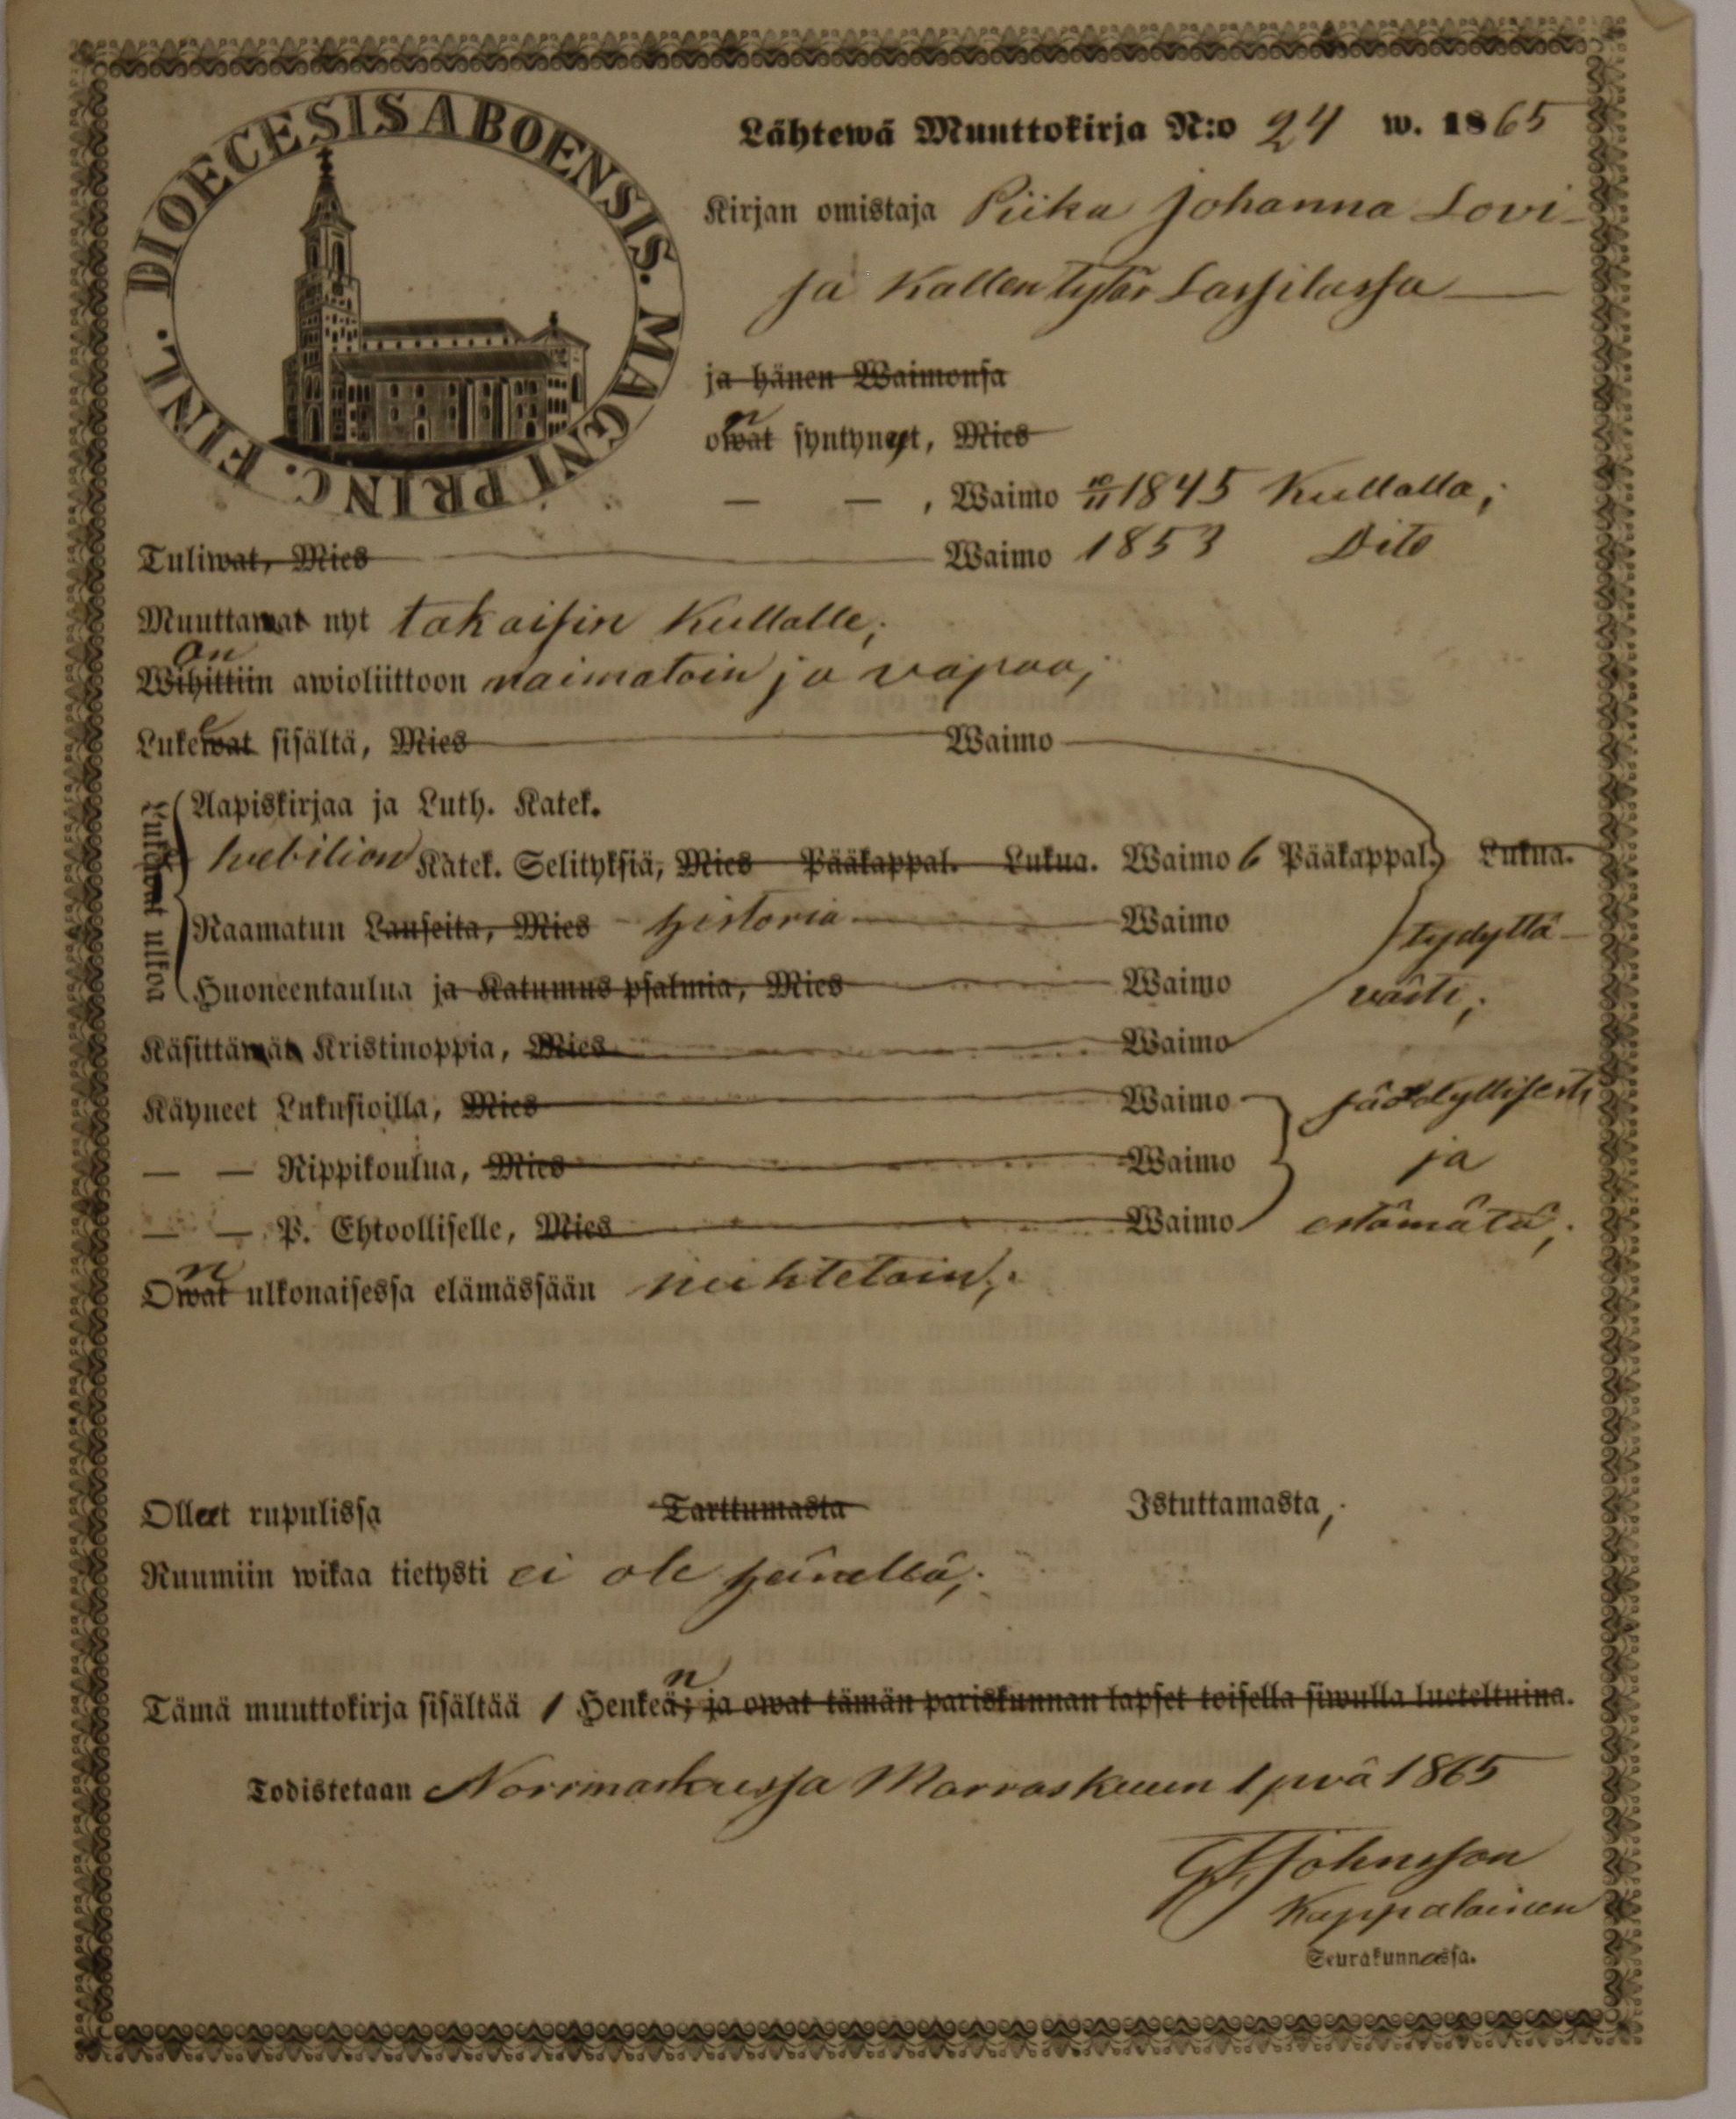 DIOECESIS ABOENSIS. MAGNI PRINC. FINL.
Lähtewä Muuttokirja N:o 24 w. 1865
Kirjan omistaja Piika Johanna Lovi-
sa Kallentytär Lassilassa
ja hänen Waimonsa
n
owat syntynyt, Mies
— — , Waimo 10/11 1845 Kullalla;
Tuliwat, Mies Waimo 1853 Dito
Muuttawat nyt takaisin Kullalle;
on
Wihittiin awioliittoon naimatoin ja vapaa;
e
Lukewat sisältä, Mies Waimo
Lukewat ulkoa
Aapiskirjaa ja Luth. Katek.
Katek. Selityksiä, Mies Pääkappal. Lukua. Waimo 6 Pääkappal. Lukua.
Raamatun Lauseita, Mies historia Waimo tydyttä-
Huoneentaulua ja Katumus psalmia, Mies Waimo västi;
Käsittäwät Kristinoppia, Mies Waimo
Käyneet Lukusioilla, Mies Waimo säädyllisesti
— — Rippikoulua, Mies Waimo ja
— — P. Ehtoolliselle, Mies Waimo estämätä;
n
Owat ulkonaisessa elämässään nuhtetoin;
Ollut rupulissa Tarttumasta Istuttamasta;
Ruumiin wikaa tietysti ei ole hänellä;
n
Tämä muuttokirja sisältää 1 Henkeä; ja owat tämän pariskunnan lapset toisella siwulla lueteltuina.
Todistetaan Norrmarkussa Marraskuun 1 pvä 1865
Johnsson
Kappalainen
Seurakunnassa.